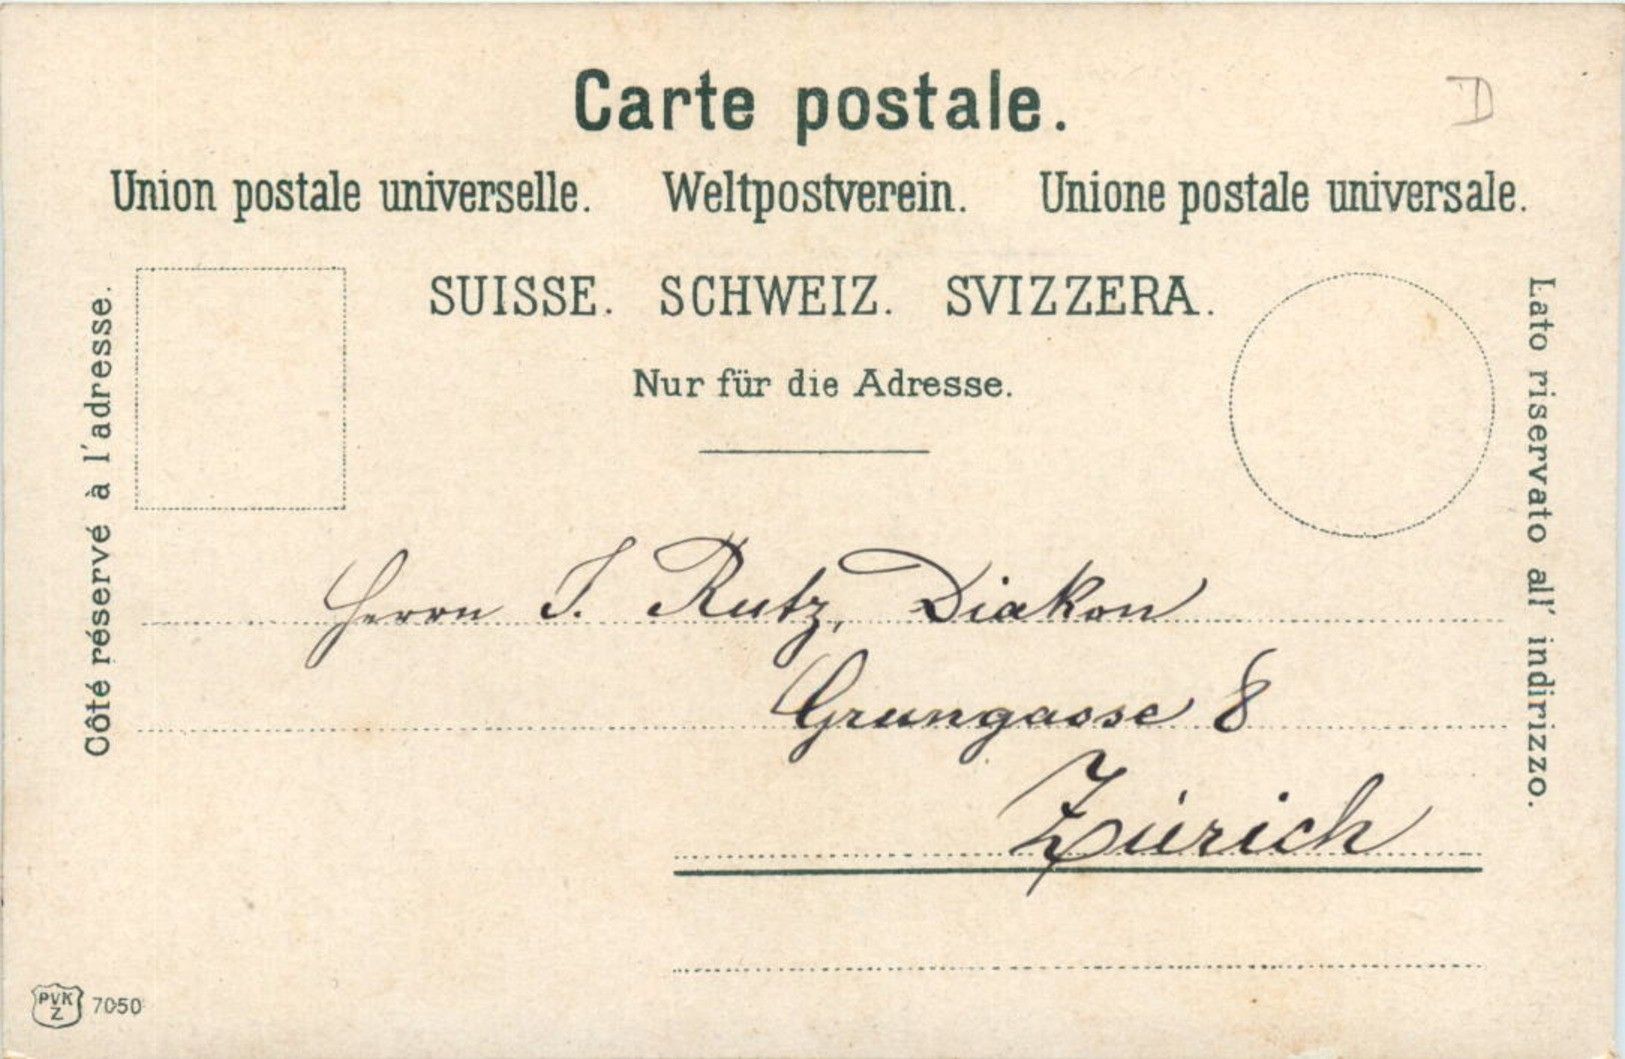 Carte postale.
D
Union postale universelle. Weltpostverein. Unione postale universale.
SUISSE. SCHWEIZ. SVIZZERA.
Nur für die Adresse.
Côté réservé à l'adresse.
Lato riservato all' indirizzo.
Herrn J. Rutz, Diakon
Grungasse 8
Zürich
PVK
Z
7050